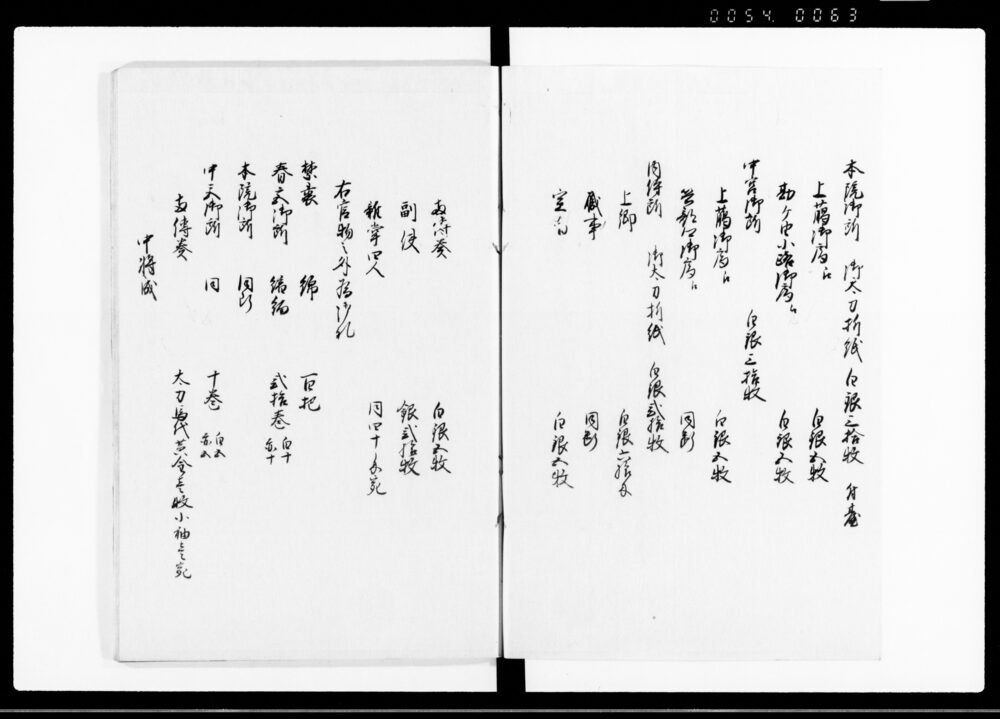 0054 0063
本院御所 御太刀折紙 白銀三拾枚 台臺
上﨟御局へ 白銀五枚
勘ケ由小路御局へ 白銀五枚
中宮御所 白銀三拾枚
上﨟御局へ 白銀五枚
兵部卿御局へ 同断
内侍所 御太刀折紙 白銀弐拾枚
上卿 白銀六拾目
蔵事 同断
宣旨 白銀五枚
両傳奏 白銀五枚
副使 銀弐拾枚
雑掌四人 同四十目宛
右官物之外為御礼
禁裏 綿 百把
春宮御所 縮緬 弐拾巻 白十 赤十
本院御所 同断
中宮御所 同 十巻 白五 赤五
両傳奏 太刀馬代黄金壱枚小袖壱宛
中将成